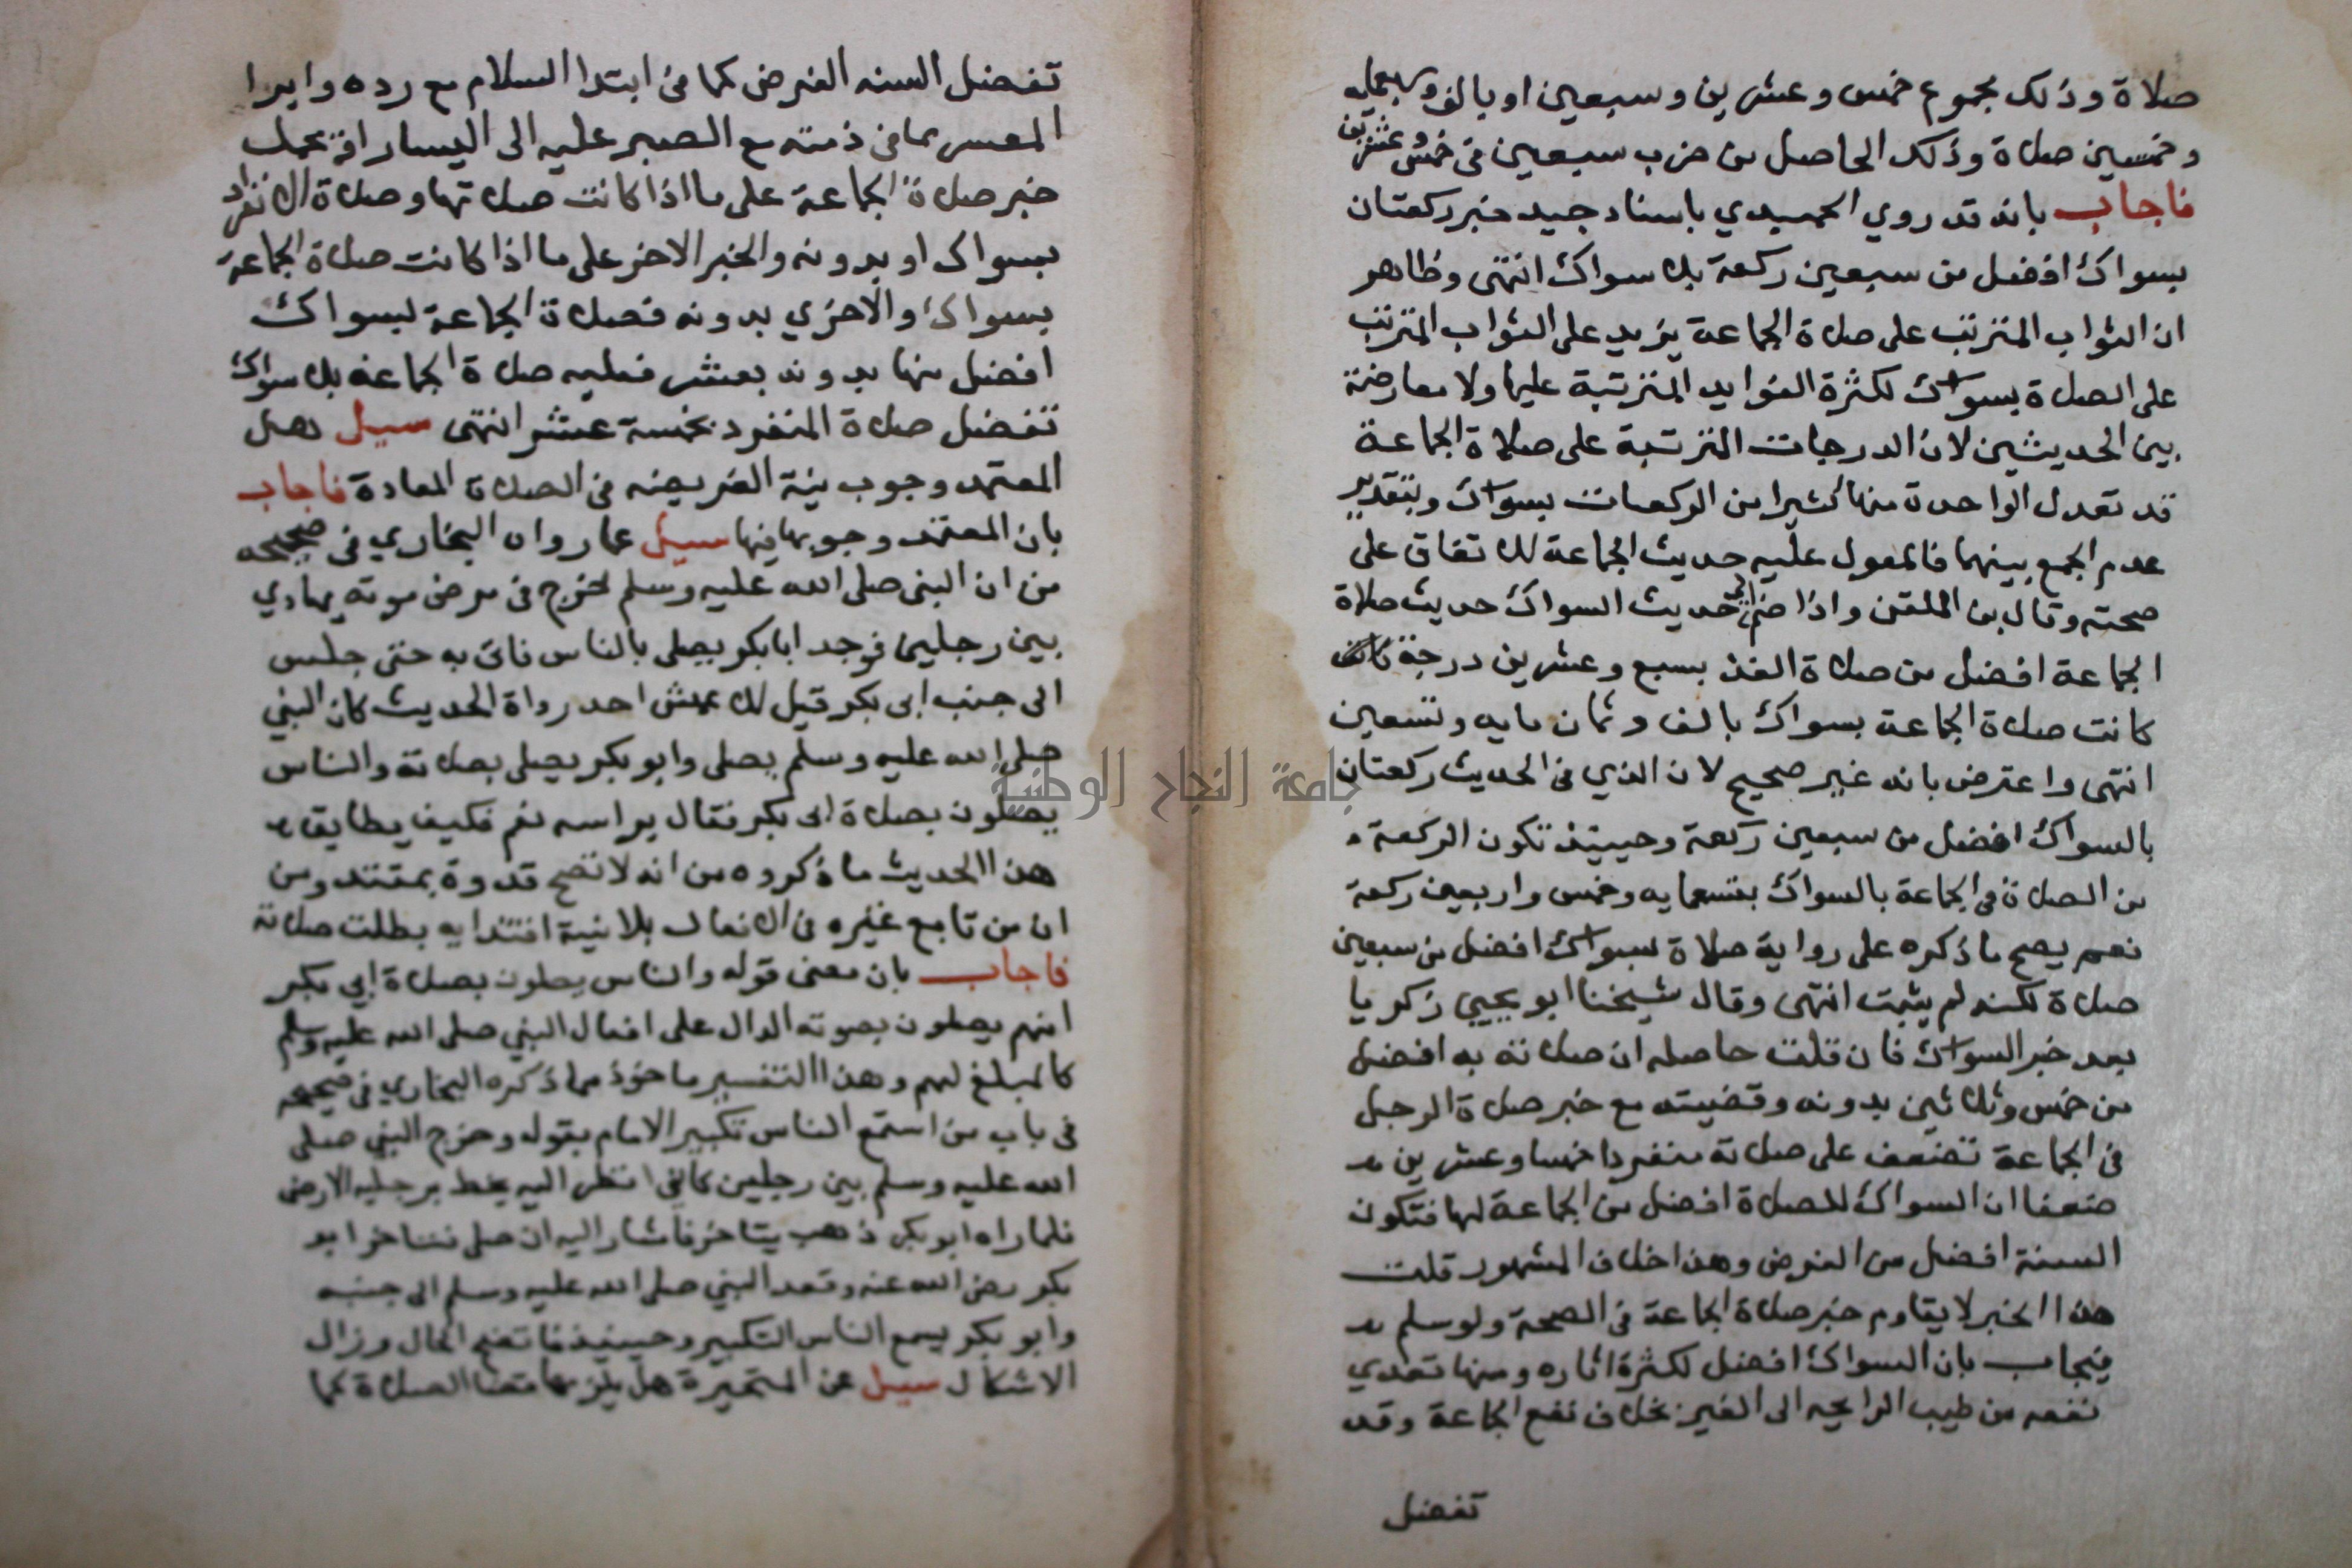 صلاة وذلك مجموع خمس وعشرين وسبعين او بالف وسبعمايه
وخمسين صلاة وذلك الحاصل من ضرب سبعين في خمس وعشرين
فاجاب بانه قد روي الحميدي باسناد جيد خبر ركعتان
بسواك افضل من سبعين ركعة بلا سواك انتهى وظاهر
ان الثواب المترتب على صلاة الجماعة يزيد على الثواب المترتب
على الصلاة بسواك لكثرة الفوايد المترتبة عليها ولا معارضة
بين الحديثين لان الدرجات المترتبة على صلاة الجماعة
قد تعدل الواحدة منها كثيرا من الركعات بسواك وبتقدير
عدم الجمع بينهما فالمعول عليه حديث الجماعة للاتفاق على
صحته وقال بن الملقن واذا ضم الى حديث السواك حديث صلاة
الجماعة افضل من صلاة الفذ بسبع وعشرين درجة
كانت صلاة الجماعة بسواك بالف وثمان مايه وتسعين
انتهى واعترض بانه غير صحيح لان الذي في الحديث ركعتان
بالسواك افضل من سبعين ركعة وحينيذ تكون الركعة
من الصلاة في الجماعة بالسواك بتسعمايه وخمس واربعين ركعة
نعم يصح ما ذكره على رواية صلاة بسواك افضل من سبعين
صلاة لكنه لم يثبت انتهى وقال شيخنا ابو يحيى زكريا
بعد خبر السواك فان قلت حاصله ان صلاته به افضل
من خمس وثلاثين بدونه وقضيته مع خبر صلاة الرجل
في الجماعة تضعف على صلاته منفردا خمسا وعشرين
ضعفا ان السواك للصلاة افضل من الجماعة لها فتكون
السنة افضل من الفرض وهذا خلاف المشهور قلت
هذا الخبر لا يقاوم خبر صلاة الجماعة في الصحة ولو سلم
فيجاب بان السواك افضل لكثرة اثاره ومنها تعدي
نفعه من طيب الرايحه الى الغير بخلاف نفع الجماعة وقد
تفضل
تفضل السنه الفرض كما في ابتدا السلام مع رده وابرا
المعسر بما في ذمته مع الصبر عليه الى اليسار او يحمل
خبر صلاة الجماعة على ما اذا كانت صلاتها وصلاة الانفراد
بسواك او بدونه والخبر الاخر على ما اذا كانت صلاة الجماعة
بسواك والاخري بدونه فصلاة الجماعة بسواك
افضل منها بدونه بعشر فعليه صلاة الجماعة بلا سواك
تفضل صلاة المنفرد بخمسة عشر انتهى سيل هل
المعتمد وجوب نية الفريضه في الصلاة المعادة فاجاب
بان المعتمد وجوبها فيها سيل عما رواه البخاري في صحيحه
من ان النبى صلى الله عليه وسلم لخرج في مرض موته يهادي
بين رجلين فوجد ابا بكر يصلى بالناس فاتى به حتى جلس
الى جنب ابى بكر قيل للاعمش احد رواة الحديث كان النبي
صلى الله عليه وسلم يصلى وابو بكر يصلى بصلاته والناس
يصلون بصلاة ابى بكر فقال براسه نعم فكيف يطابق
هذا الحديث ما ذكروه من انه لا تصح قدوة بمقتد ومن
ان من تابع غيره في الافعال بلا نية اقتدا به بطلت صلاته
فاجاب بان معنى قوله والناس يصلون بصلاة ابي بكر
انهم يصلون بصوته الدال على افعال النبي صلى الله عليه وسلم
كالمبلغ لهم وهذا التفسير ماخوذ مما ذكره البخاري في صحيحه
في باب من اسمع الناس تكبير الامام بقوله وخرج النبي صلى
الله عليه وسلم بين رجلين كاني انظر اليه يخط برجليه الارض
فلما راه ابو بكر ذهب يتاخر فاشار اليه ان صلى فتاخر ابو
بكر رضى الله عنه وقعد النبي صلى الله عليه وسلم الى جنبه
وابو بكر يسمع الناس التكبير وحينيذ فاتضح الحال وزال
الاشكال سيل عن المتحيرة هل يلزمها قضا الصلاة كما
جامعة النجاح الوطنية